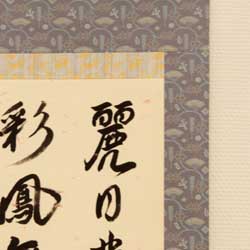 麗日
彩鳳